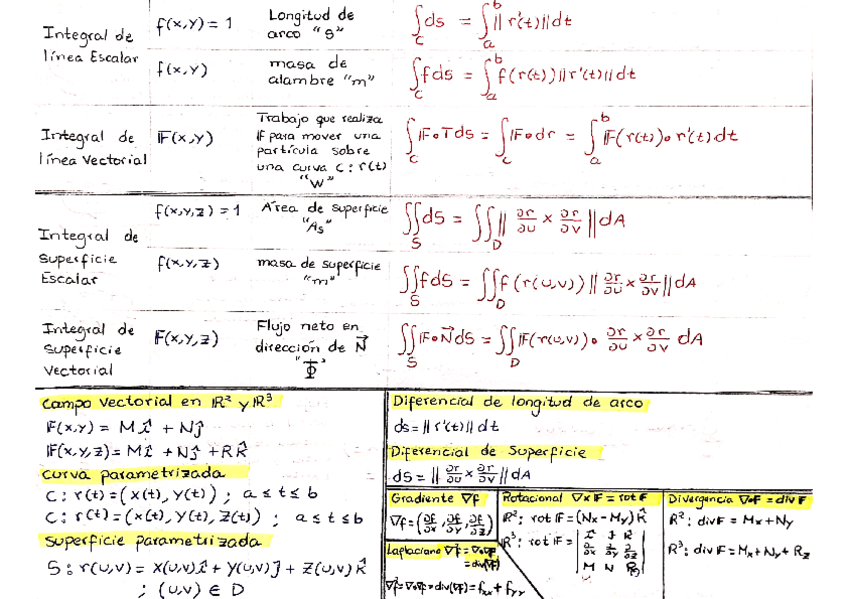 Integral de línea Escalar
f(x,y) = 1
Longitud de arco "S"
∫_C ds = ∫_a^b ‖r'(t)‖dt
f(x,y)
masa de alambre "m"
∫_C fds = ∫_a^b f(r(t))‖r'(t)‖dt
Integral de línea Vectorial
𝔽(x,y)
Trabajo que realiza
𝔽 para mover una
partícula sobre
una curva C: r(t)
"W"
∫_C 𝔽∘Tds = ∫_C 𝔽∘dr = ∫_a^b 𝔽(r(t))∘r'(t)dt
Integral de Superficie Escalar
f(x,y,z) = 1
Área de superficie
"As"
∬_S dS = ∬_D ‖∂r/∂u × ∂r/∂v‖dA
f(x,y,z)
masa de superficie
"m"
∬_S fdS = ∬_D f(r(u,v))‖∂r/∂u × ∂r/∂v‖dA
Integral de Superficie Vectorial
𝔽(x,y,z)
Flujo neto en
dirección de N⃗
"Φ"
∬_S 𝔽∘N⃗dS = ∬_D 𝔽(r(u,v))∘ ∂r/∂u × ∂r/∂v dA
Campo Vectorial en ℝ² y ℝ³
𝔽(x,y) = Mî + Nĵ
𝔽(x,y,z) = Mî + Nĵ + Rk̂
Curva parametrizada
C: r(t) = (x(t), y(t)) ; a ≤ t ≤ b
C: r(t) = (x(t), y(t), z(t)) ; a ≤ t ≤ b
Superficie parametrizada
S: r(u,v) = x(u,v)î + y(u,v)ĵ + z(u,v)k̂
; (u,v) ∈ D
Diferencial de longitud de arco
ds = ‖r'(t)‖dt
Diferencial de Superficie
dS = ‖∂r/∂u × ∂r/∂v‖dA
Gradiente ∇f
∇f = (∂f/∂x, ∂f/∂y, ∂f/∂z)
Laplaciano ∇²f = ∇∘∇f
= div(∇f)
∇²f = ∇∘∇f = div(∇f) = fxx + fyy
Rotacional ∇×𝔽 = rot𝔽
ℝ²: rot𝔽 = (Nx - My)k̂
ℝ³: rot𝔽 = | î ĵ k̂ |
| ∂/∂x ∂/∂y ∂/∂z |
| M N R |
Divergencia ∇∘𝔽 = div𝔽
ℝ²: div𝔽 = Mx + Ny
ℝ³: div𝔽 = Mx + Ny + Rz